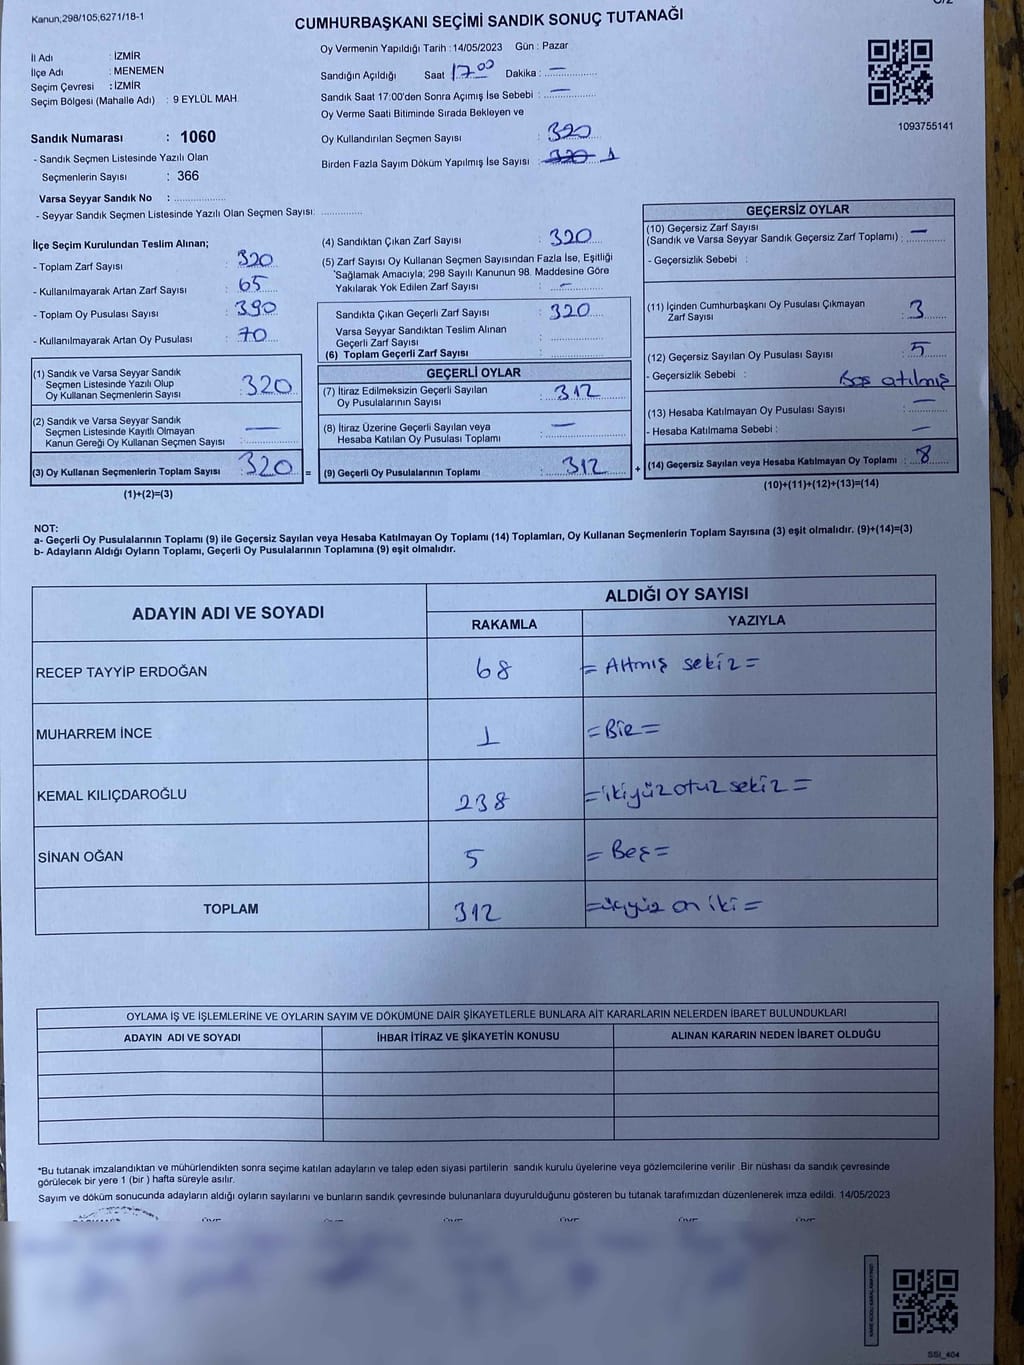 Kanun;298/105;6271/18-1
CUMHURBAŞKANI SEÇİMİ SANDIK SONUÇ TUTANAĞI
İl Adı : İZMİR
İlçe Adı : MENEMEN
Seçim Çevresi : İZMİR
Seçim Bölgesi (Mahalle Adı) : 9 EYLÜL MAH.
Sandık Numarası : 1060
- Sandık Seçmen Listesinde Yazılı Olan
Seçmenlerin Sayısı : 366
Varsa Seyyar Sandık No :
- Seyyar Sandık Seçmen Listesinde Yazılı Olan Seçmen Sayısı:
Oy Vermenin Yapıldığı Tarih : 14/05/2023 Gün : Pazar
Sandığın Açıldığı Saat 17 00 Dakika : —
Sandık Saat 17:00'den Sonra Açımış İse Sebebi : —
Oy Verme Saati Bitiminde Sırada Bekleyen ve
Oy Kullandırılan Seçmen Sayısı : 320
Birden Fazla Sayım Döküm Yapılmış İse Sayısı : 320 1
1093755141
İlçe Seçim Kurulundan Teslim Alınan;
- Toplam Zarf Sayısı : 320
- Kullanılmayarak Artan Zarf Sayısı : 65
- Toplam Oy Pusulası Sayısı : 390
- Kullanılmayarak Artan Oy Pusulası : 70
(1) Sandık ve Varsa Seyyar Sandık
Seçmen Listesinde Yazılı Olup
Oy Kullanan Seçmenlerin Sayısı : 320
(2) Sandık ve Varsa Seyyar Sandık
Seçmen Listesinde Kayıtlı Olmayan
Kanun Gereği Oy Kullanan Seçmen Sayısı : —
(3) Oy Kullanan Seçmenlerin Toplam Sayısı : 320 =
(1)+(2)=(3)
(4) Sandıktan Çıkan Zarf Sayısı : 320
(5) Zarf Sayısı Oy Kullanan Seçmen Sayısından Fazla İse, Eşitliği
Sağlamak Amacıyla; 298 Sayılı Kanunun 98. Maddesine Göre
Yakılarak Yok Edilen Zarf Sayısı : —
Sandıkta Çıkan Geçerli Zarf Sayısı : 320
Varsa Seyyar Sandıktan Teslim Alınan
Geçerli Zarf Sayısı :
(6) Toplam Geçerli Zarf Sayısı :
GEÇERLİ OYLAR
(7) İtiraz Edilmeksizin Geçerli Sayılan
Oy Pusulalarının Sayısı : 312
(8) İtiraz Üzerine Geçerli Sayılan veya
Hesaba Katılan Oy Pusulası Toplamı : —
(9) Geçerli Oy Pusulalarının Toplamı : 312 +
GEÇERSİZ OYLAR
(10) Geçersiz Zarf Sayısı
(Sandık ve Varsa Seyyar Sandık Geçersiz Zarf Toplamı) : —
- Geçersizlik Sebebi :
(11) İçinden Cumhurbaşkanı Oy Pusulası Çıkmayan
Zarf Sayısı : 3
(12) Geçersiz Sayılan Oy Pusulası Sayısı : 5
- Geçersizlik Sebebi : Boş atılmış
(13) Hesaba Katılmayan Oy Pusulası Sayısı : —
- Hesaba Katılmama Sebebi : —
(14) Geçersiz Sayılan veya Hesaba Katılmayan Oy Toplamı : 8
(10)+(11)+(12)+(13)=(14)
NOT:
a- Geçerli Oy Pusulalarının Toplamı (9) ile Geçersiz Sayılan veya Hesaba Katılmayan Oy Toplamı (14) Toplamları, Oy Kullanan Seçmenlerin Toplam Sayısına (3) eşit olmalıdır. (9)+(14)=(3)
b- Adayların Aldığı Oyların Toplamı, Geçerli Oy Pusulalarının Toplamına (9) eşit olmalıdır.
ADAYIN ADI VE SOYADI
ALDIĞI OY SAYISI
RAKAMLA YAZIYLA
RECEP TAYYİP ERDOĞAN 68 = Altmış sekiz =
MUHARREM İNCE 1 = Bir =
KEMAL KILIÇDAROĞLU 238 = ikiyüz otuz sekiz =
SİNAN OĞAN 5 = Beş =
TOPLAM 312 = üçyüz on iki =
OYLAMA İŞ VE İŞLEMLERİNE VE OYLARIN SAYIM VE DÖKÜMÜNE DAİR ŞİKAYETLERLE BUNLARA AİT KARARLARIN NELERDEN İBARET BULUNDUKLARI
ADAYIN ADI VE SOYADI İHBAR İTİRAZ VE ŞİKAYETİN KONUSU ALINAN KARARIN NEDEN İBARET OLDUĞU
*Bu tutanak imzalandıktan ve mühürlendikten sonra seçime katılan adayların ve talep eden siyasi partilerin sandık kurulu üyelerine veya gözlemcilerine verilir .Bir nüshası da sandık çevresinde
görülecek bir yere 1 (bir ) hafta süreyle asılır.
Sayım ve döküm sonucunda adayların aldığı oyların sayılarını ve bunların sandık çevresinde bulunanlara duyurulduğunu gösteren bu tutanak tarafımızdan düzenlenerek imza edildi. 14/05/2023
SSİ_404